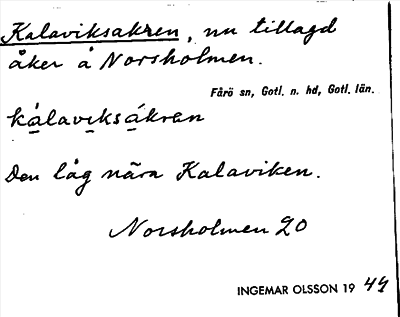 Kalaviksakren, nu tillagd
åker å Norsholmen.
Fårö sn, Gotl. n. hd, Gotl. län.
kálaviksákran
Den låg nära Kalaviken.
Norsholmen 20
INGEMAR OLSSON 19 49